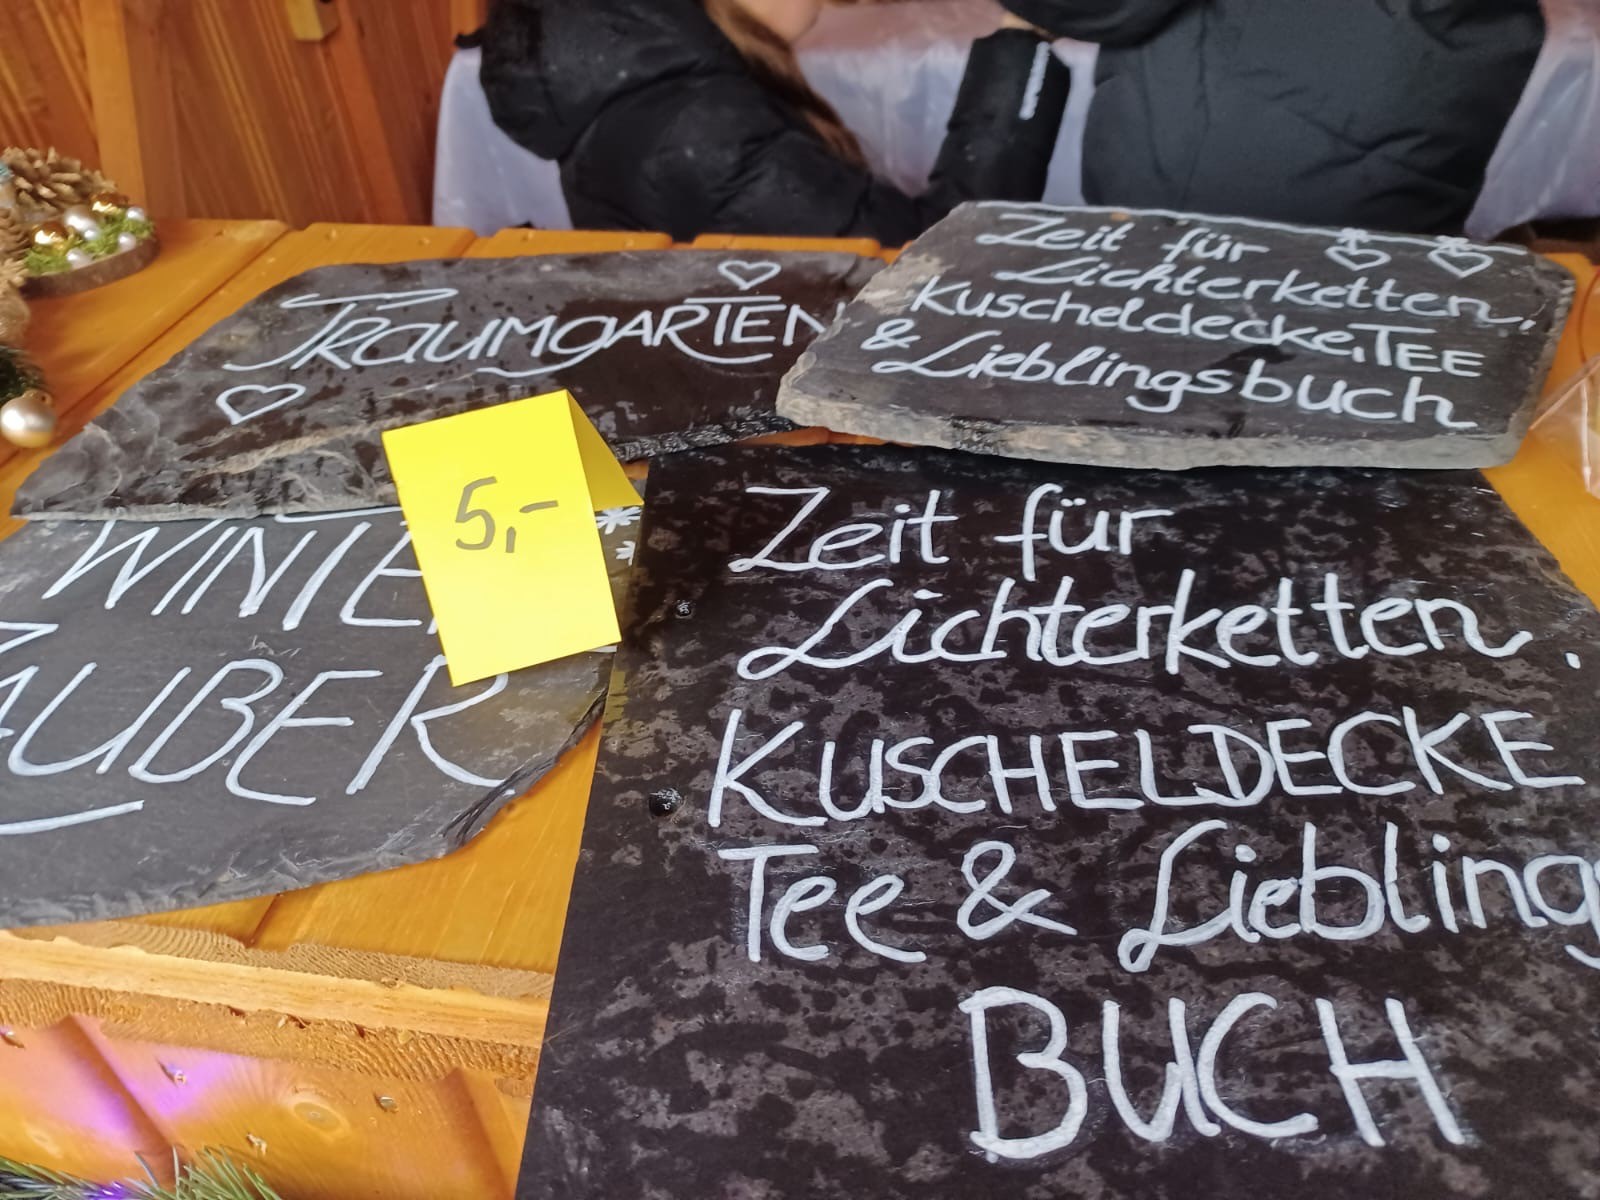 TRAUMGARTEN
Zeit für
Lichterketten,
Kuscheldecke, TEE
& Lieblingsbuch
5,-
WINTE
ZAUBER
Zeit für
Lichterketten,
KUSCHELDECKE
Tee & Lieblings
BUCH